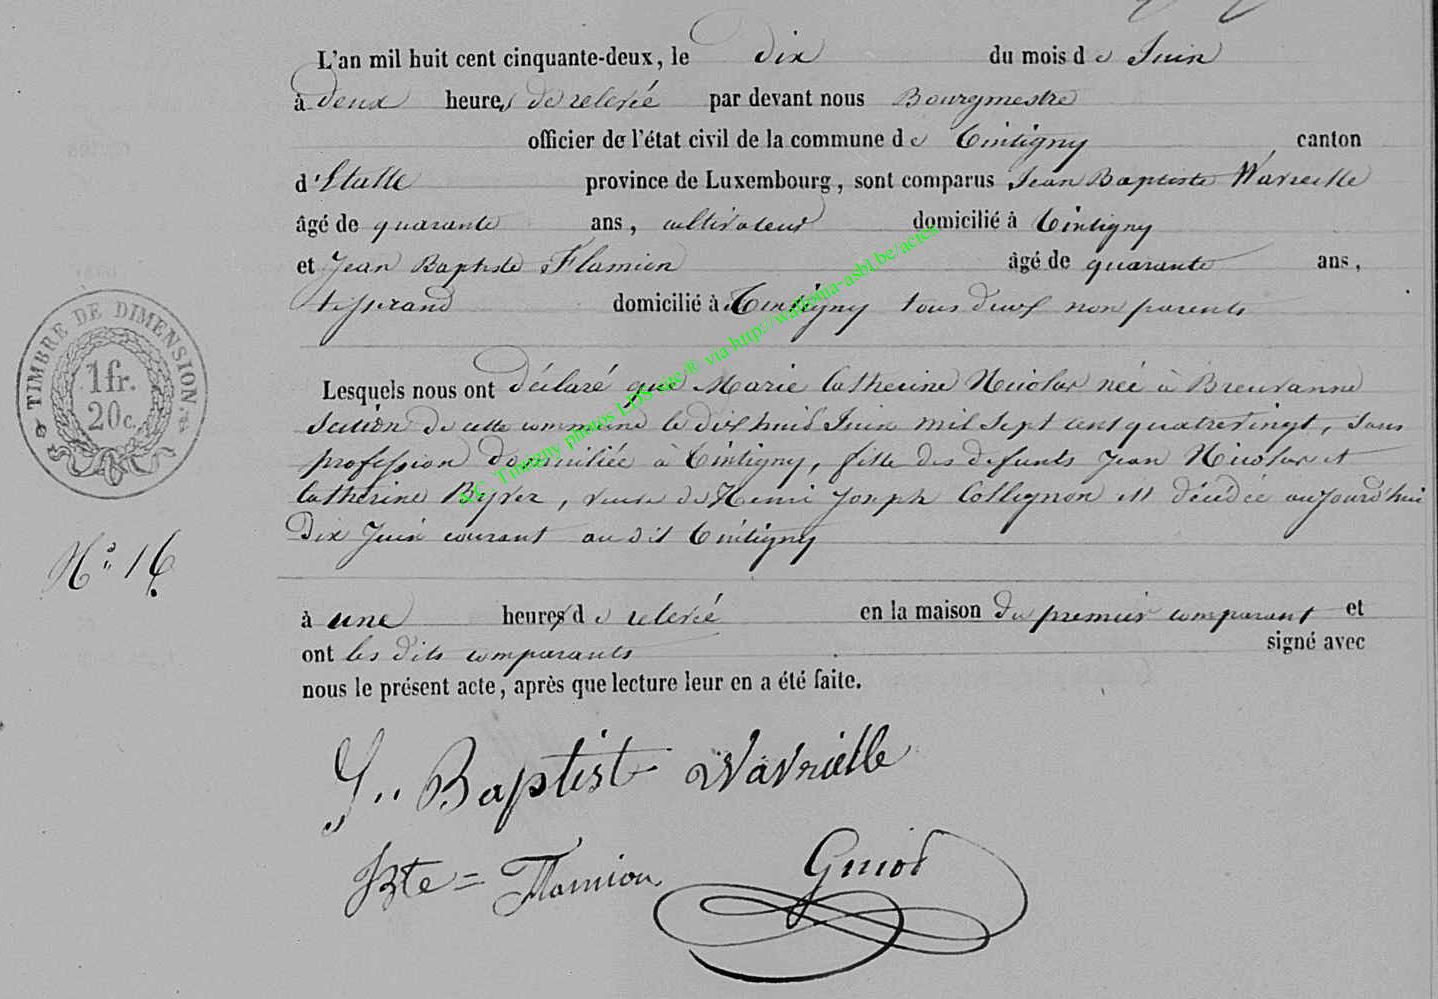 L'an mil huit cent cinquante-deux, le dix du mois de Juin
à deux heures de relevée par devant nous Bourgmestre
officier de l'état civil de la commune de Tintigny canton
d'Etalle province de Luxembourg, sont comparus Jean Baptiste Wavreille
âgé de quarante ans, cultivateur domicilié à Tintigny
et Jean Baptiste Flamion âgé de quarante ans,
tisserand domicilié à Tintigny tous deux non parents
Lesquels nous ont déclaré que Marie Catherine Nicolas née à Breuvanne
section de cette commune le dix huit Juin mil sept cent quatrevingt, sans
profession domiciliée à Tintigny, fille des defunts Jean Nicolas et
Catherine, veuve de Henri Joseph Collignon est décédée aujourd'hui
Dix Juin courant au dit Tintigny
à une heures de relevée en la maison du premier comparant et
ont les dits comparants signé avec
nous le présent acte, après que lecture leur en a été faite.
TIMBRE DE DIMENSION
1 fr.
20 c.
N° 16
J. Baptist Wavrielle
JBte = Flamion
Guiot
Tintigny photos LDS site ® via http://wallonia-asbl.be/actes